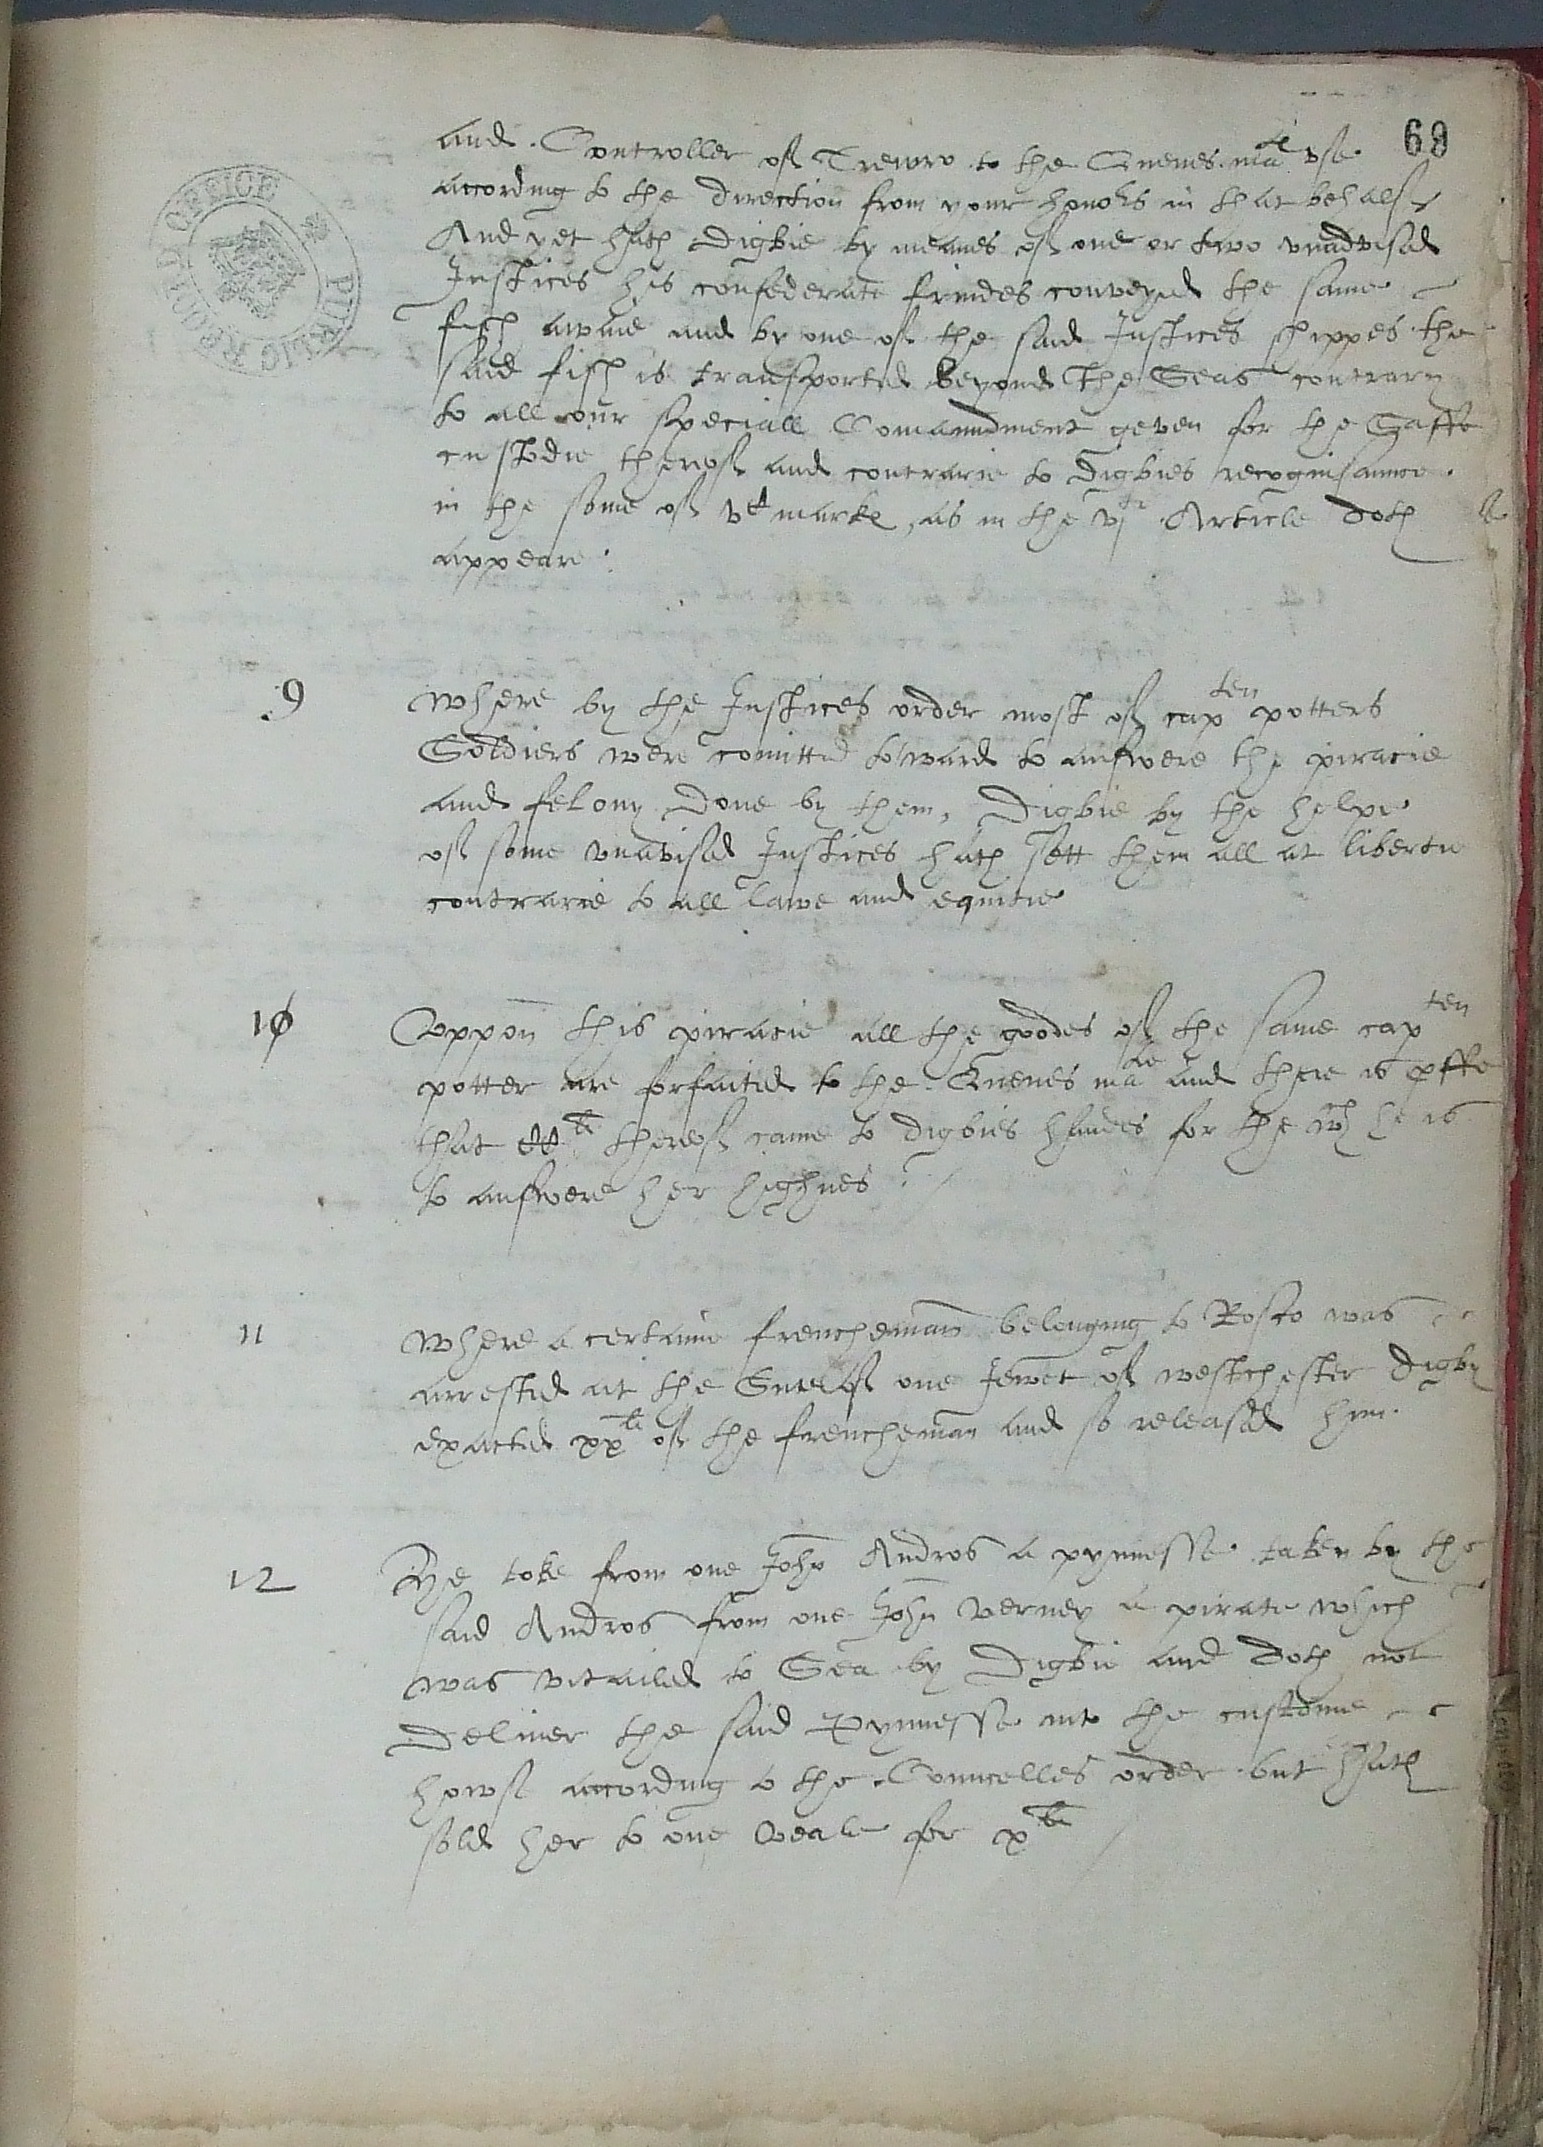 69
and Controller of Trewro to the Quenes ma^te vse
according to the direction from your hono^rs in that behalf
And yet hath Digbie by meanes of one or two vnadvised
Justices his confederate frindes conveyed the same
fish awaie and by one of the said Justices shippes the
said fish is transported beyond the Seas contrary
to all our speciall Comaundment geven for the Saffe
custodie therof and contrarie to Digbies recognisaunce
in the some of v^c markes, as in the vj^th Article doth
appeare.
9 Where by the Justices order most of cap^ten potters
Soldiers were comitted to ward to answere the piracie
and felony done by them, Digbie by the helpe
of some vnavised Justices hath sett them all at libertie
contrarie to all lawe and equitie
10 Vppon this piracie all the goodes of the same cap^ten
potter are forfaited to the Quenes ma^te and there is proffe
that therof came to Digbies handes for the w^ch he is
to answere her highnes
11 Where a certaine frencheman belonging to Rosco was
arrested at the Sute of one Jewet of westchester Digby
exacted xx^li of the frencheman and so released him.
12 He toke from one John Andros a pynnesse taken by the
said Andros from one John Verney a pirate which
was vitailed to Sea by Digbie and doth not
Deliver the said Pynnesse into the custome
howse according to the Councelles order but hath
sold her to one Veale for x^li
PUBLIC RECORD OFFICE